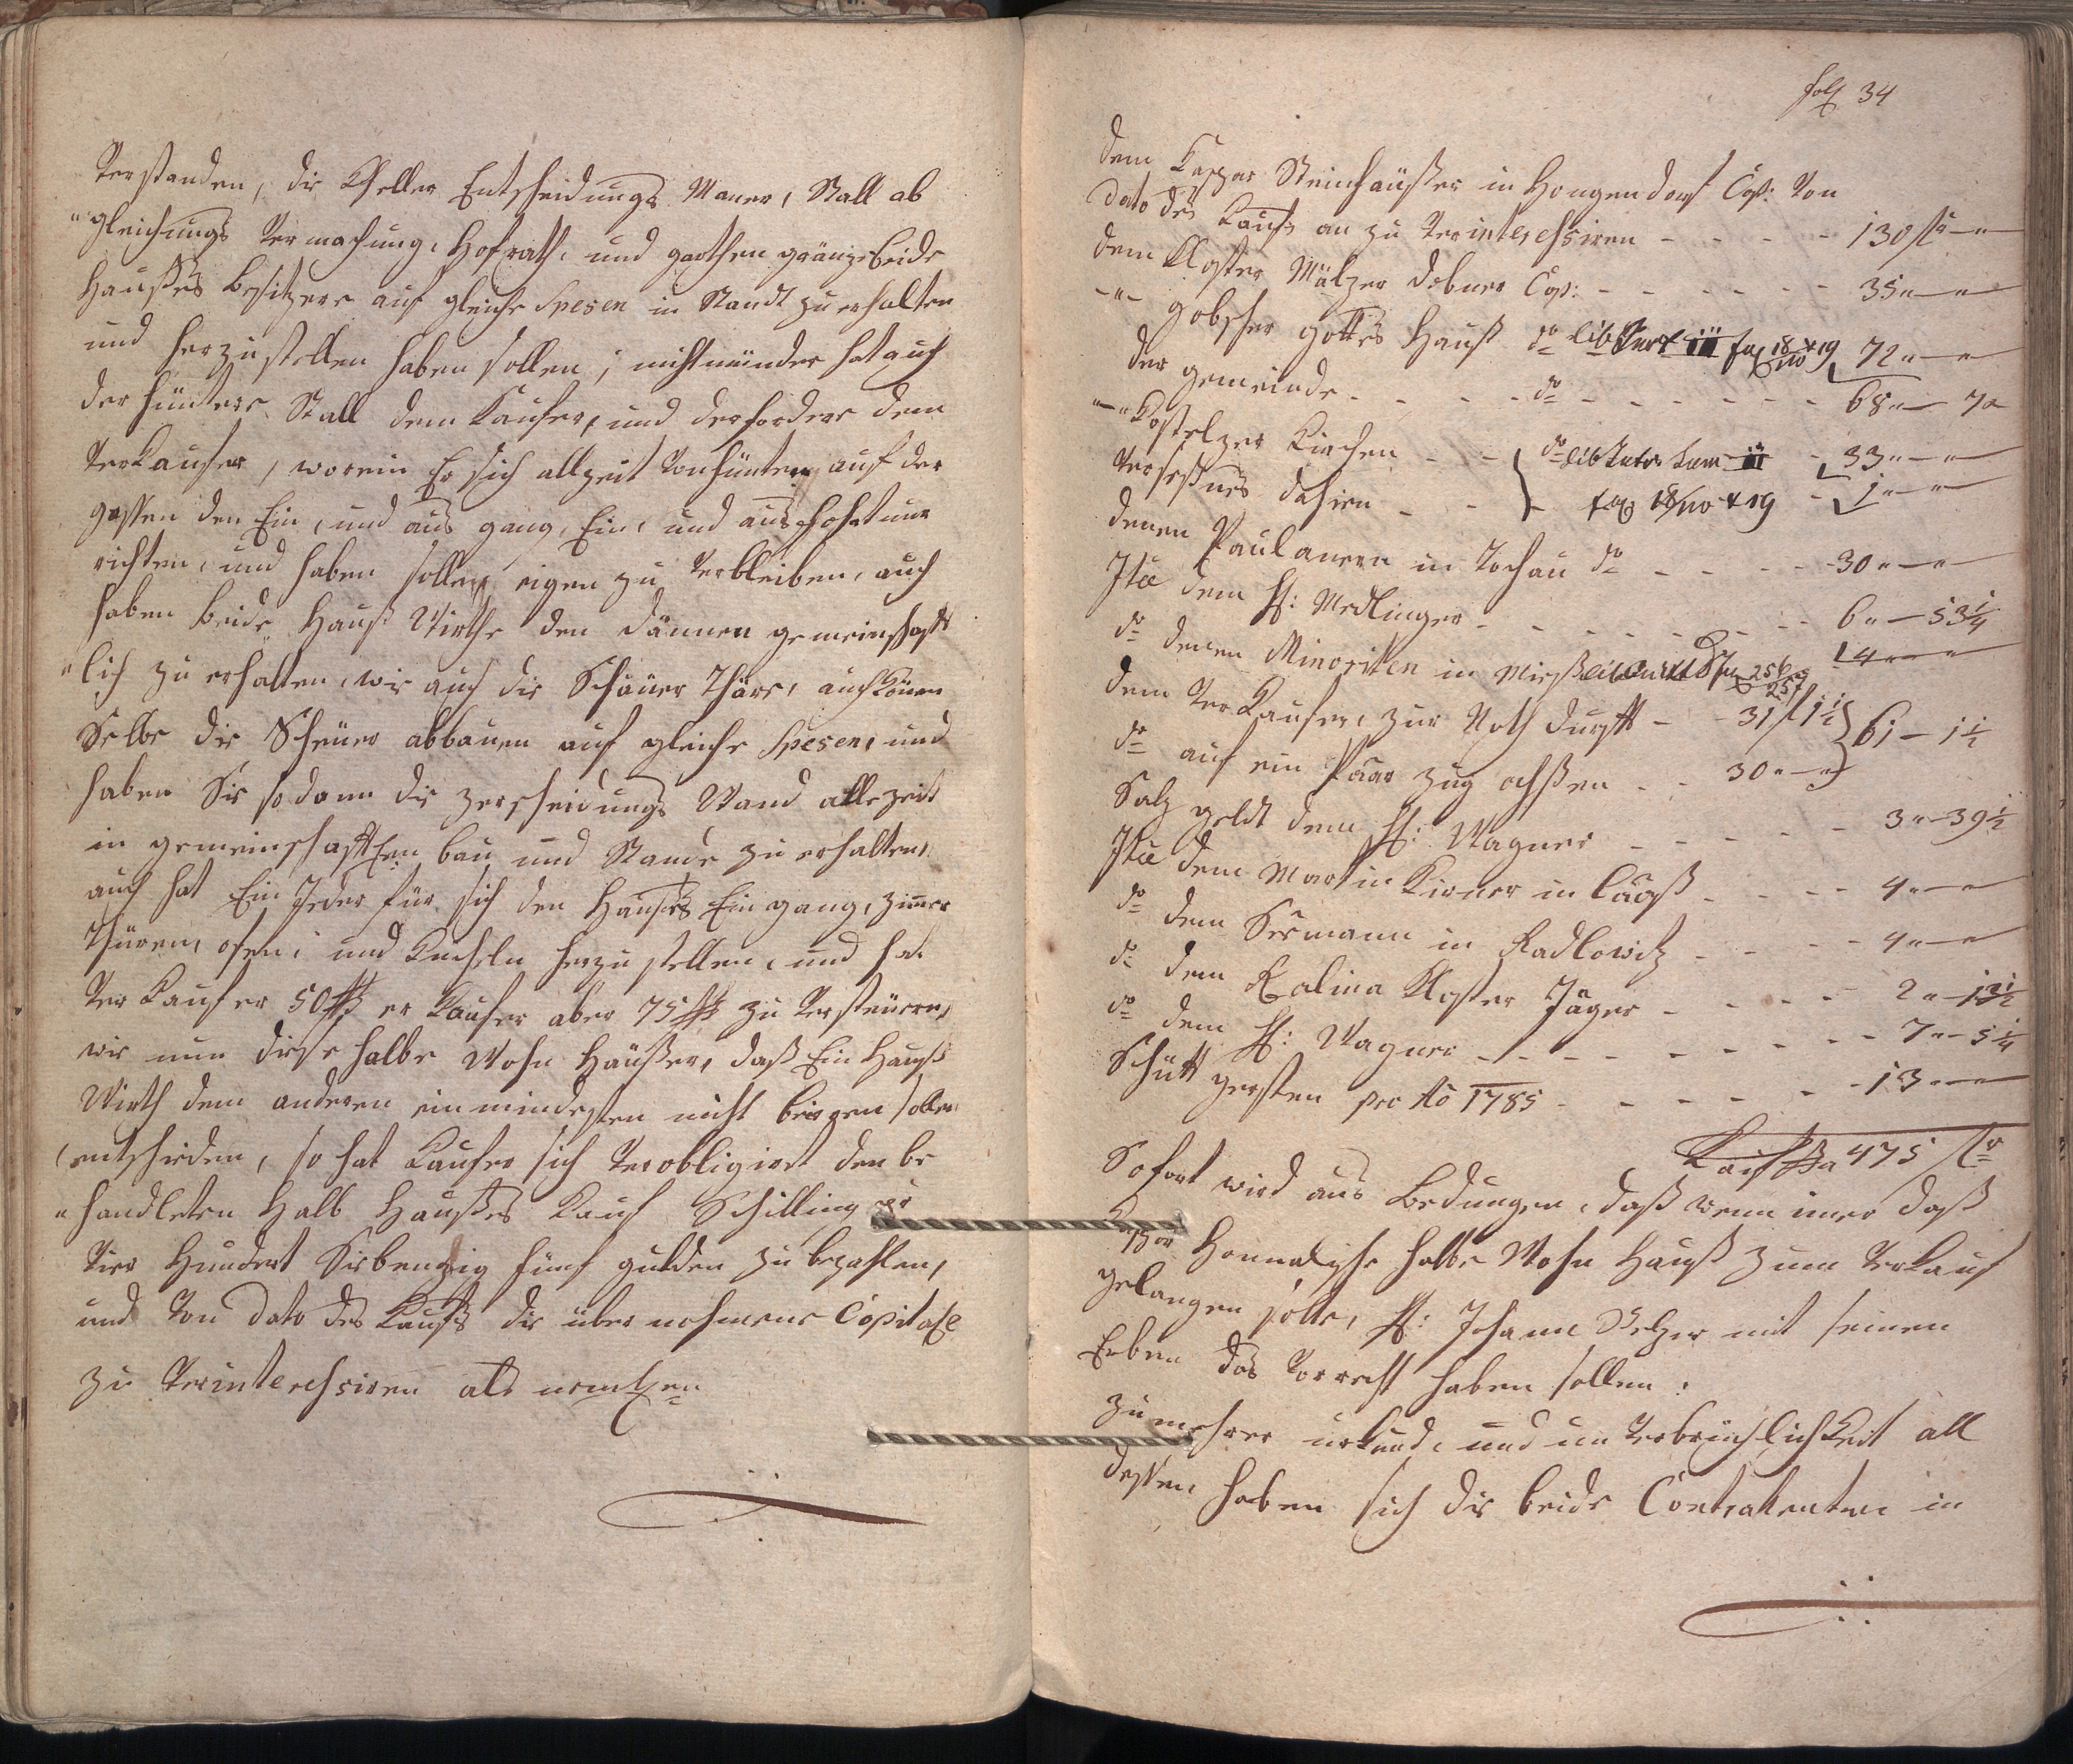 Verstanden, die Kheller Entscheidungs Mauer, Stall ab
"gleichungs Vermachung, Hofrath, und garthen gränze beide
Haußes Besitzere auf gleiche Spesen in Standt zu erhalten
und herzustellen haben sollen; nicht münder hat auch
der hüntere Stall dem Kaufer, und der fordere dem
Verkaufer, worein Er sich allzeit von hünten auf der
gassen den Ein, und aus gang, Ein, und aus
richten, und haben solle, eigen zu verbleiben, auch
haben beide Hauß Wirthe den dännen gemeinschaft
"lich zu erhalten, wie auch die Scheüer Thäre, auch können
Selbe die Scheüer abbauen auf gleiche Spesen, und
haben Sie sodann die zerscheidungs Wand allezeit
in gemeinschaftlen bau und Stande zu erhalten,
auch hat Ein Jeder für sich den Haußes Eingang, zimmer
Thüren, ofen, und Kucheln herzustellen, und hat
Verkaufer 50 er Kaufer aber 75 zu Versteüren,
wie nun diese halbe Wohn Häußer, daß Ein Hauß
Wirth dem anderen ein mindesten nicht beirren solle
entschieden, so hat Kaufer sich Verobligiret den be
"handleten Halb Haußes Kauf Schilling pr
Vier Hundert Siebenzig fünf gulden zu bezahlen,
und Von dato des Kaufs die übernohmene Capitale
zu Verinteressiren als nemlen
fol 34
dem Kaspar Steinhäußer in Hongendorf Cap: Von
dato des Kaufs an zu Verinteressiren - - - - 130 fr - "
dem Kloster Mälzer dobner Cap: - - - - - - 35 " - "
- " - gobscher gottes Hauß do lib III fol 18 & 19 72 " - "
der gemeinde - - - - do - - - - - - 68 " - 7 "
- " - Kostelzer Kirchen - - do lib III - 33 " - "
dahien - - fol 18 & 19 - 1 " - "
denen Paulanern in Tochau do - - - - 30 " - "
Ite dem H: Medlinger - - - - - - - 6 " - 53 1/4
do denen Minoriten in Mieß lib fol 256 257 4 " - "
dem Verkaufer, zur Nothdurft - - 31 f 1 1/2 } 61 - 1 1/2
do auf ein Paar zug ochßen - - 30 " - "
Salz geldt dem H: Wagner - - - - - 3 " - 39 1/2
Ite dem Martin Kirner in - - - - 4 " - "
do dem Sermann in Radlowitz - - - - 4 " - "
do dem Kalina Kloster Jäger - - - - 2 " -
do dem H: Wagner - - - - - - - 7 " - 5 1/4
Schütt gersten pro Ao 1785 - - - - - 13 " - "
475 fr
Sofort wird aus Bedungen, daß wenn imer daß
Kaspar halbe Wohn Hauß zum Verkauf
gelangen solte, H: Johann Pelzer mit seinen
Erben das Vorrecht haben sollen.
Zu mehrer urkund, und un Verbrüchlichkeit all
dessen haben sich die beide Contrahenten in